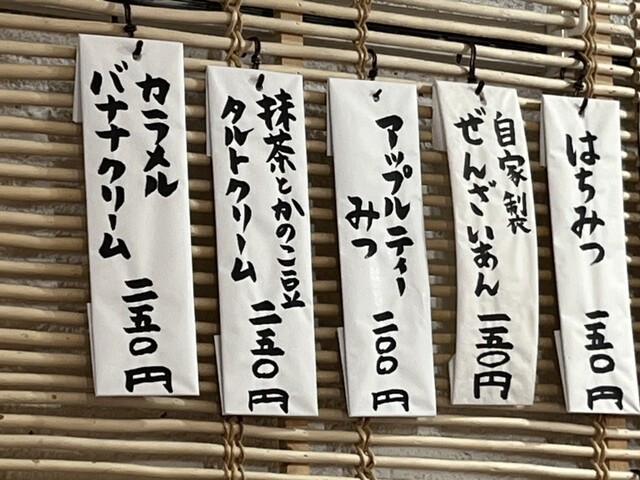 はちみつ
一五〇円
自家製
ぜんざいあん
一五〇円
アップルティー
みつ
二〇〇円
抹茶とかのこ豆
タルトクリーム
二五〇円
カラメル
バナナクリーム
二五〇円